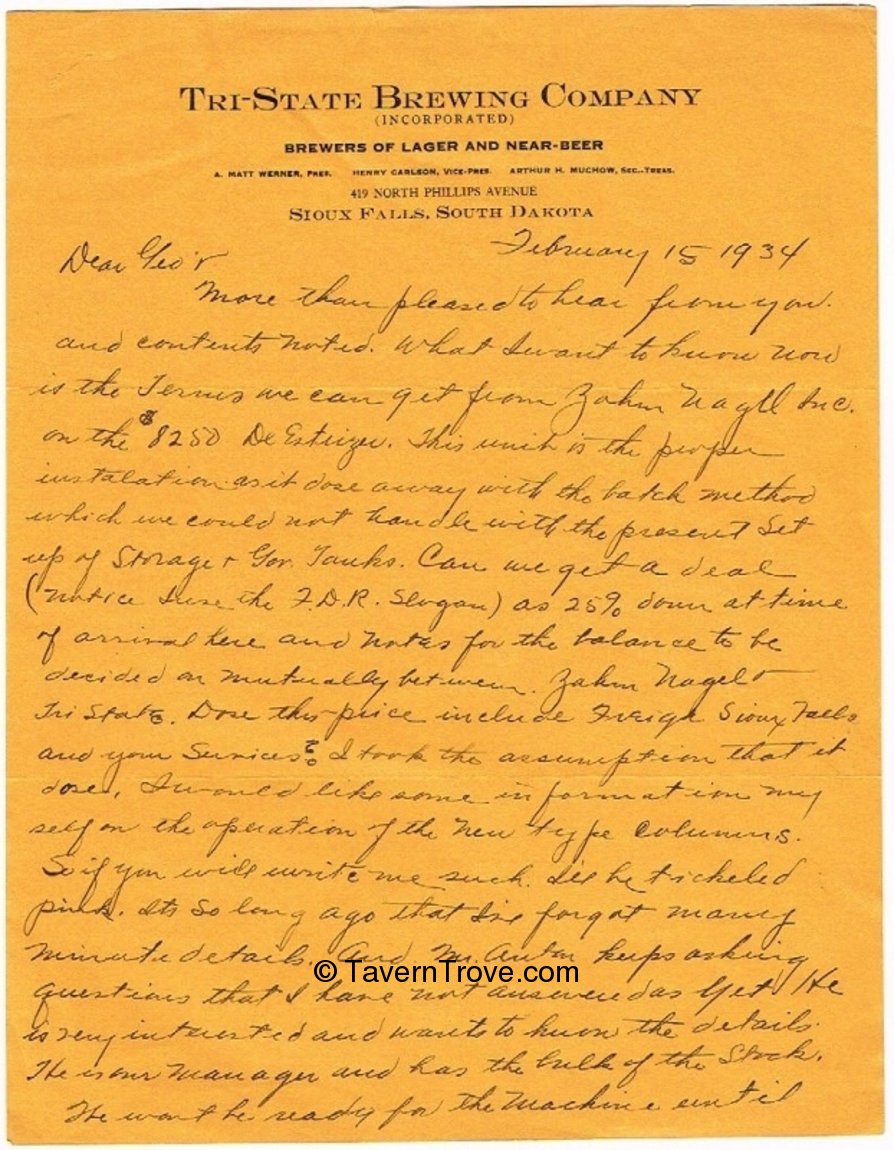 TRI-STATE BREWING COMPANY
(INCORPORATED)
BREWERS OF LAGER AND NEAR-BEER
A. MATT WERNER, PRES. HENRY CARLSON, VICE-PRES. ARTHUR H. MUCHOW, SEC.-TREAS.
419 NORTH PHILLIPS AVENUE
SIOUX FALLS, SOUTH DAKOTA
February 15 1934
Dear Geo'r
More than pleased to hear from you.
and contents noted. What I want to know now
is the Terms we can get from Zahm Nagel Inc.
on the $8250 De Estrizer. This unit is the proper
instalation as it dose away with the batch method
which we could not handle with the present Set
up of Storage + Gov. Tanks. Can we get a deal
(notice I use the F.D.R. Slogan) as 25% down at time
of arrival here and notes for the balance to be
decided on mutually between. Zahm Nagel +
Tri State. Dose this price include Freigh Sioux Falls
and your Services? I took the assumption that it
dose. I would like some information my
self on the operation of the new type columns.
So if you will write me such. I'll be tickeled
pink. Its so long ago that I've forgot many
minute details. And Mr. keeps asking
questions that I have not answered as Yet. He
is very interested and wants to know the details.
He is our manager and has the bulk of the Stock.
He wont be ready for the Machine until
© TavernTrove.com